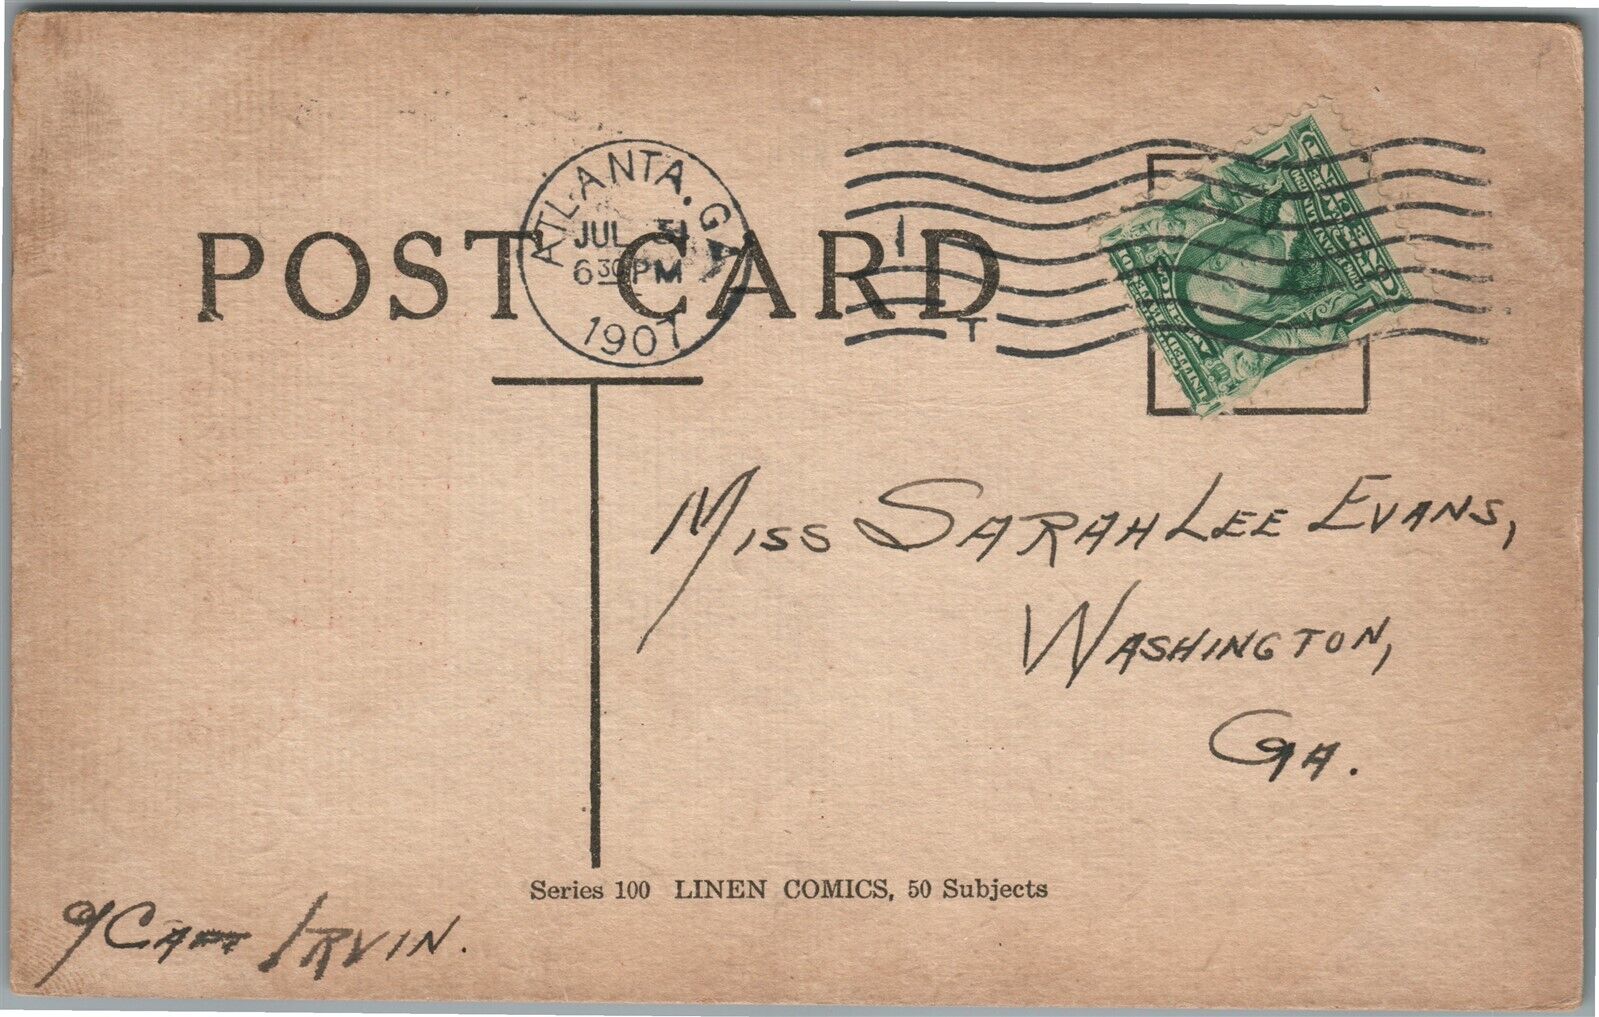 POST CARD
ATLANTA, GA.
JUL 31
6 30 PM
1907
1
T
MISS SARAH LEE EVANS,
WASHINGTON,
GA.
Series 100 LINEN COMICS, 50 Subjects
IRVIN.